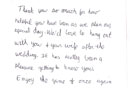 Thank you so much for how
helpful you have been on our
special day. We'd love to hang out
with you & your wife after the
wedding. It has really been a
pleasure getting to know you.
Enjoy the wine & once again